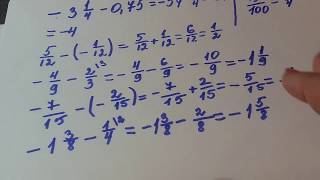 - 3 1/4 - 0,75 = -3
= -4
5/12 - (-1/12) = 5/12 + 1/12 = 6/12 = 1/2
- 4/9 - 2/3 \3 = - 4/9 - 6/9 = - 10/9 = -1 1/9
- 7/15 - (-2/15) = - 7/15 + 2/15 = - 5/15 =
- 1 3/8 - 1/4 \2 = -1 3/8 - 2/8 = -1 5/8